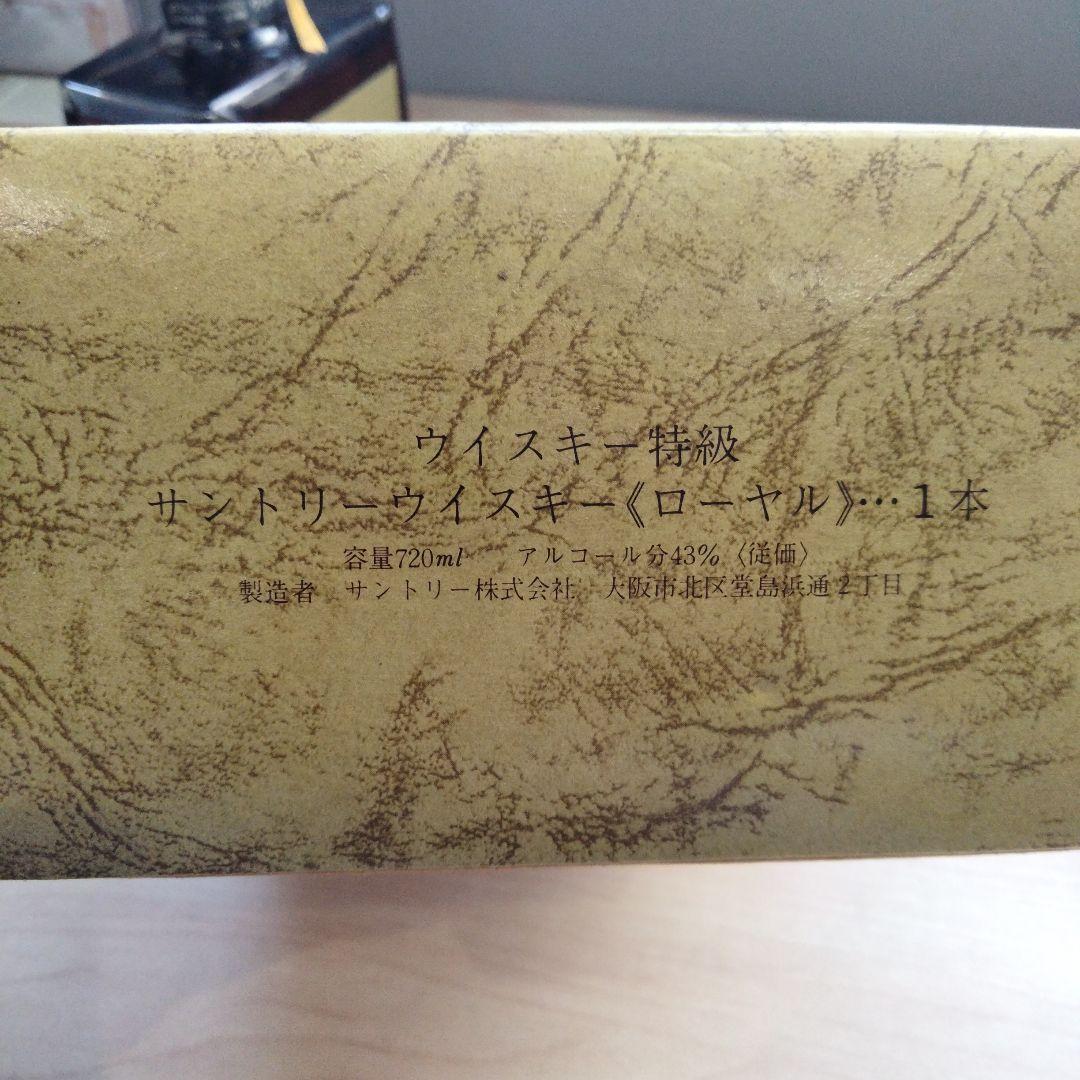 ウイスキー特級
サントリーウイスキー《ローヤル》…1本
容量720ml　アルコール分43％〈従価〉
製造者　サントリー株式会社　大阪市北区堂島浜通2丁目